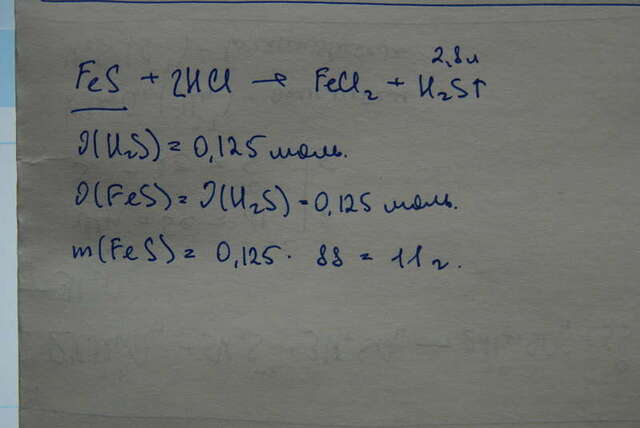 2,8л
FeS + 2HCl → FeCl₂ + H₂S↑
ν(H₂S) = 0,125 моль.
ν(FeS) = ν(H₂S) = 0,125 моль.
m(FeS) = 0,125 · 88 = 11 г.